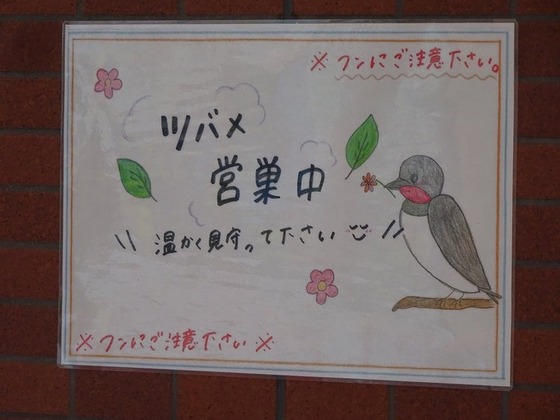 ※フンにご注意下さい。
ツバメ
営巣中
\\ 温かく見守って下さい //
※フンにご注意下さい※